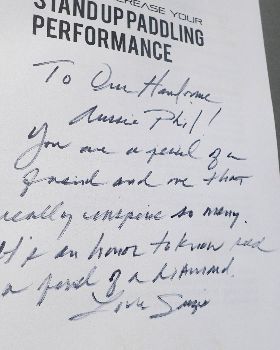 CREASE YOUR
STAND UP PADDLING
PERFORMANCE
To Our Handsome
Aussie Phil!
You are a jewel of a
friend and one that
really inspires so many.
It's an honor to know
a jewel of a diamond.
Love Suzie